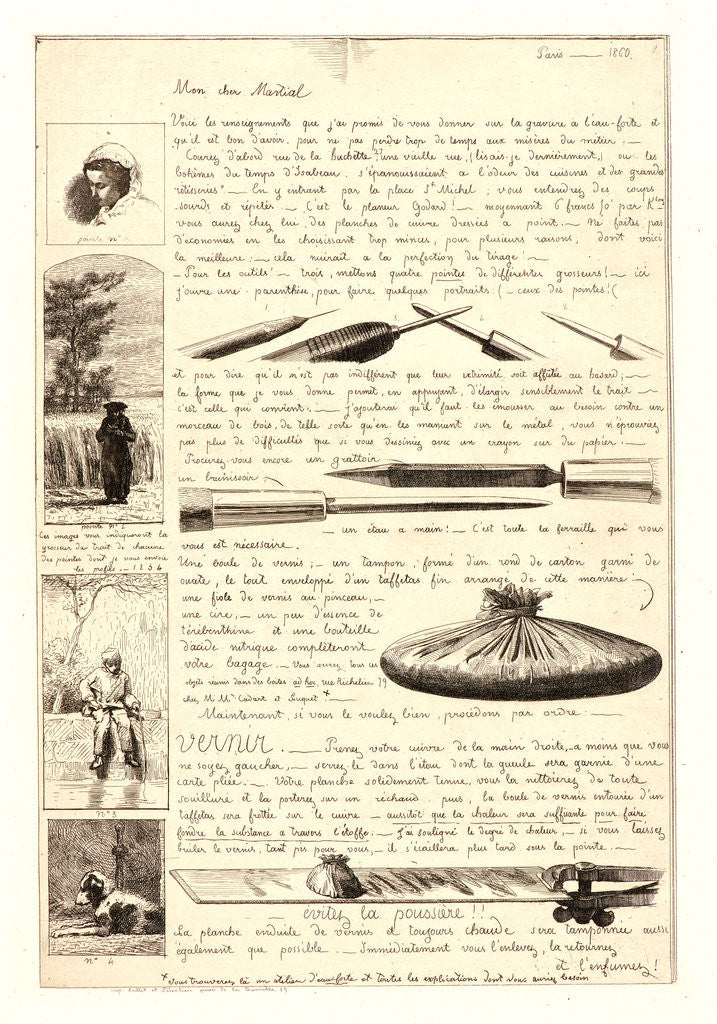 Paris — 1860.
Mon cher Martial
Voici les renseignements que j'ai promis de vous donner sur la gravure a l'eau-forte et
qu'il est bon d'avoir, pour ne pas perdre trop de temps aux misères du métier. —
Courez d'abord rue de la Huchette, "une vieille rue, (lisais-je dernièrement,) ou les
bohèmes du temps d'Isabeau s'épanouissaient a l'odeur des cuisines et des grandes
rôtisseries" — En y entrant par la place St Michel ; vous entendrez des coups
sourds et répétés — C'est le planeur Godard ! — moyennant 6 francs 50c par K.
vous aurez chez lui, des planches de cuivre dressées a point. — Ne faites pas
d'économies en les choisissant trop minces, pour plusieurs raisons, dont voici
la meilleure : — cela nuirait a la perfection du tirage ! —
— Pour les outils ! — trois, mettons quatre pointes de différentes grosseurs ! — ici
j'ouvre une parenthèse, pour faire quelques portraits : ( — ceux des pointes ! (
pointe n° 1
1. 3. 4. 2.
et pour dire qu'il n'est pas indifférent que leur extrémité soit affutée au hasard ; —
la forme que je vous donne permet, en appuyant, d'élargir sensiblement le trait —
c'est celle qui convient. — J'ajouterai qu'il faut les émousser au besoin contre un
morceau de bois, de telle sorte qu'en les maniant sur le métal, vous n'éprouviez
pas plus de difficultés que si vous dessiniez avec un crayon sur du papier. —
Procurez-vous encore un grattoir
un brunissoir ;
— un étau a main ! — C'est toute la ferraille qui vous
vous est nécessaire.
pointe N° 2
Ces images vous indiqueront la
grosseur du trait de chacune
des pointes dont je vous envoie
les profils. — 1 2 3 4
Une boule de vernis ; — un tampon, formé d'un rond de carton garni de
ouate, le tout enveloppé d'un taffetas fin arrangé de cette manière :
une fiole de vernis au pinceau, —
une cire, — un peu d'essence de
térébenthine et une bouteille
d'acide nitrique compléteront
votre bagage. — Vous aurez tous ces
objets réunis dans des boites ad hoc, rue Richelieu 79
chez M Mrs Cadart et Luquet + —
Maintenant, si vous le voulez bien, procédons par ordre : —
n° 3
VERNIR. — Prenez votre cuivre de la main droite, — a moins que vous
ne soyez gaucher, — serrez-le dans l'étau dont la gueule sera garnie d'une
carte pliée. — Votre planche solidement tenue, vous la nettoierez de toute
souillure et la porterez sur un réchaud. puis, la boule de vernis entourée d'un
taffetas sera frottée sur le cuivre — aussitôt que la chaleur sera suffisante pour faire
fondre la substance a travers l'étoffe : — J'ai souligné le degré de chaleur, — si vous laissez
brûler le vernis, tant pis pour vous, — il s'écaillera plus tard sous la pointe. —
n° 4
— évitez la poussière !!
La planche enduite de vernis et toujours chaude sera tamponnée aussi
également que possible. — Immédiatement vous l'enlevez, la retournez
et l'enfumez !
+ vous trouverez là un atelier d'eau-forte et toutes les explications dont vous auriez besoin